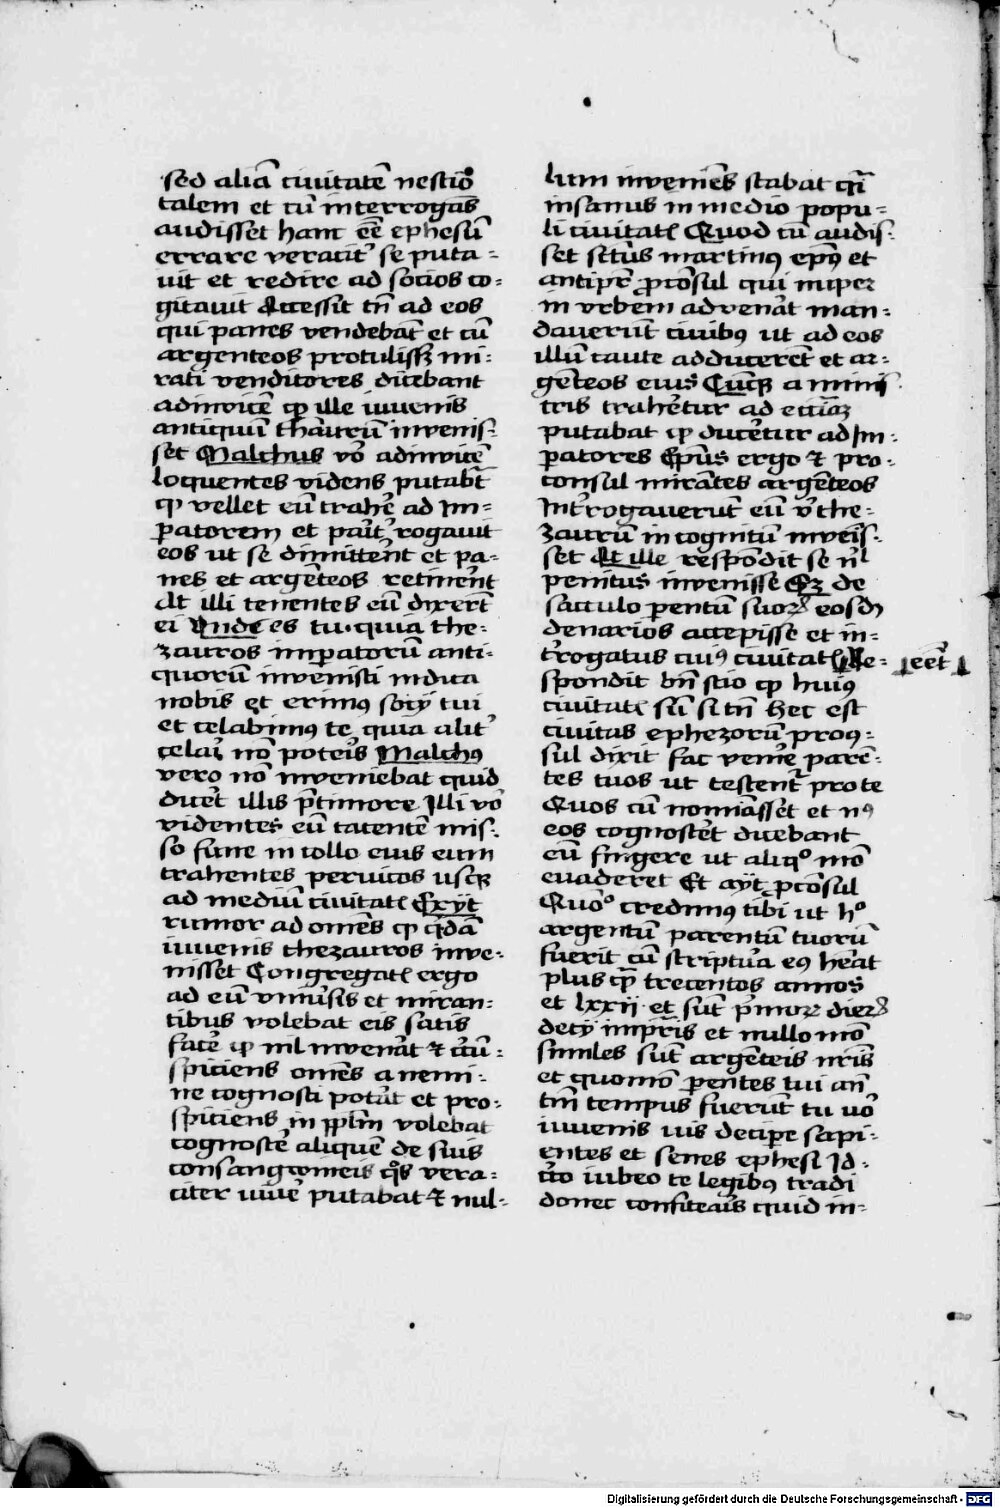 sed aliā ciuitatē nescio
talem et cū interrogās
audisset hanc eē ephesū
errare veracit' se puta-
uit et redire ad socios co-
gitauit Accessit tn̄ ad eos
qui panes vendebāt et cū
argenteos protuliss3 mi-
rati venditores dicebant
adinuicē ꝙ ille iuuenis
antiquū thaurū inuenis-
set Malchus vō adinuicē
loquentes videns putabt̄
ꝙ vellet eū trahē ad Im-
ꝑatorem et pauīt' rogauit
eos ut se dimitterēt et pa-
nes et argēteos retinerēt
At illi tenentes eū dixerūt
ei Vnde es tu quia the-
zauros imꝑatorū anti-
quorū inuenisti indica
nobis et erimꝰ socij tui
et celabimꝰ te quia alit'
celari nō poteris Malchꝰ
vero nō inueniebat quid
dicēt illis p̄ timore Illi vō
videntes eū tacentē mis-
so fune in collo eius eum
trahentes per vicos usqꝫ
ad mediū ciuitatꝭ Exijt
rumor ad omēs ꝙ q̄dā
iuuenis thezauros inue-
nisset Congregatꝭ ergo
ad eū vniūsis et miran-
tibus volebat eis satis
facē ꝙ nil inuenāt ⁊ c̄cū-
spiciens omēs a nemi-
ne cognosci potūt et pro-
spiciens in pplm̄ volebat
cognoscē aliquē de suis
consangwineis q̊s vera-
citer uiuē putabat ⁊ nul-
lum inueniēs stabat q̄i
insanus in medio popu-
li ciuitatꝭ Quod cū audis-
set sct̄us martinꝰ epō et
antipr̄ ꝓconsul qui nuper
in vrbem advenāt man-
dauerūt ciuibꝰ ut ad eos
illū caute adducerēt et ar-
gēteos eius Cūqꝫ a minis
tris trahēetur ad ecciā3
putabat ꝙ ducēetur ad Im-
ꝑatores Ep̄us ergo ⁊ pro-
consul mirātes argēteos
Int'rogauerūt eū vͦ the-
zaurū incognitū inueīs-
set At ille respōdit se nl̄
penitus inuenisse S3 de
sacculo ꝑentū suorꝫ eosdꝫ
denarios accepisse et in-
t'rogatus cuiꝰ ciuitatꝭ Re-
eēt
spondit bn̄ scio ꝙ huiꝰ
ciuitatꝭ sū si tn̄ hec est
ciuitas ephezorū procꝰ-
sul dixit fac venīre parē-
tes tuos ut testent' pro te
Quos cū nomīasset et nꝰ
eos cognoscēt dicebant
eū fingere ut aliqͦ mō
euaderet Et ayt ꝓcōsul
Quōͦ credimꝰ tibi ut hͦ
argentū parentū tuorū
fuerit cū scriptura eꝰ heāt
plus q̄ trecentos annos
et lxxij et sūt p̄morꝫ dierꝫ
decij impr̄is et nullo mō
similes sūt argēteis nr̄is
et quomō ꝑentes tui an̄
tm̄ tempus fuerūt tu vō
iuuenis uis deciꝑe sapi-
entes et senes ephesi Id-
c̄co iubeo te legibꝰ tradi
donec confitearis quid in-